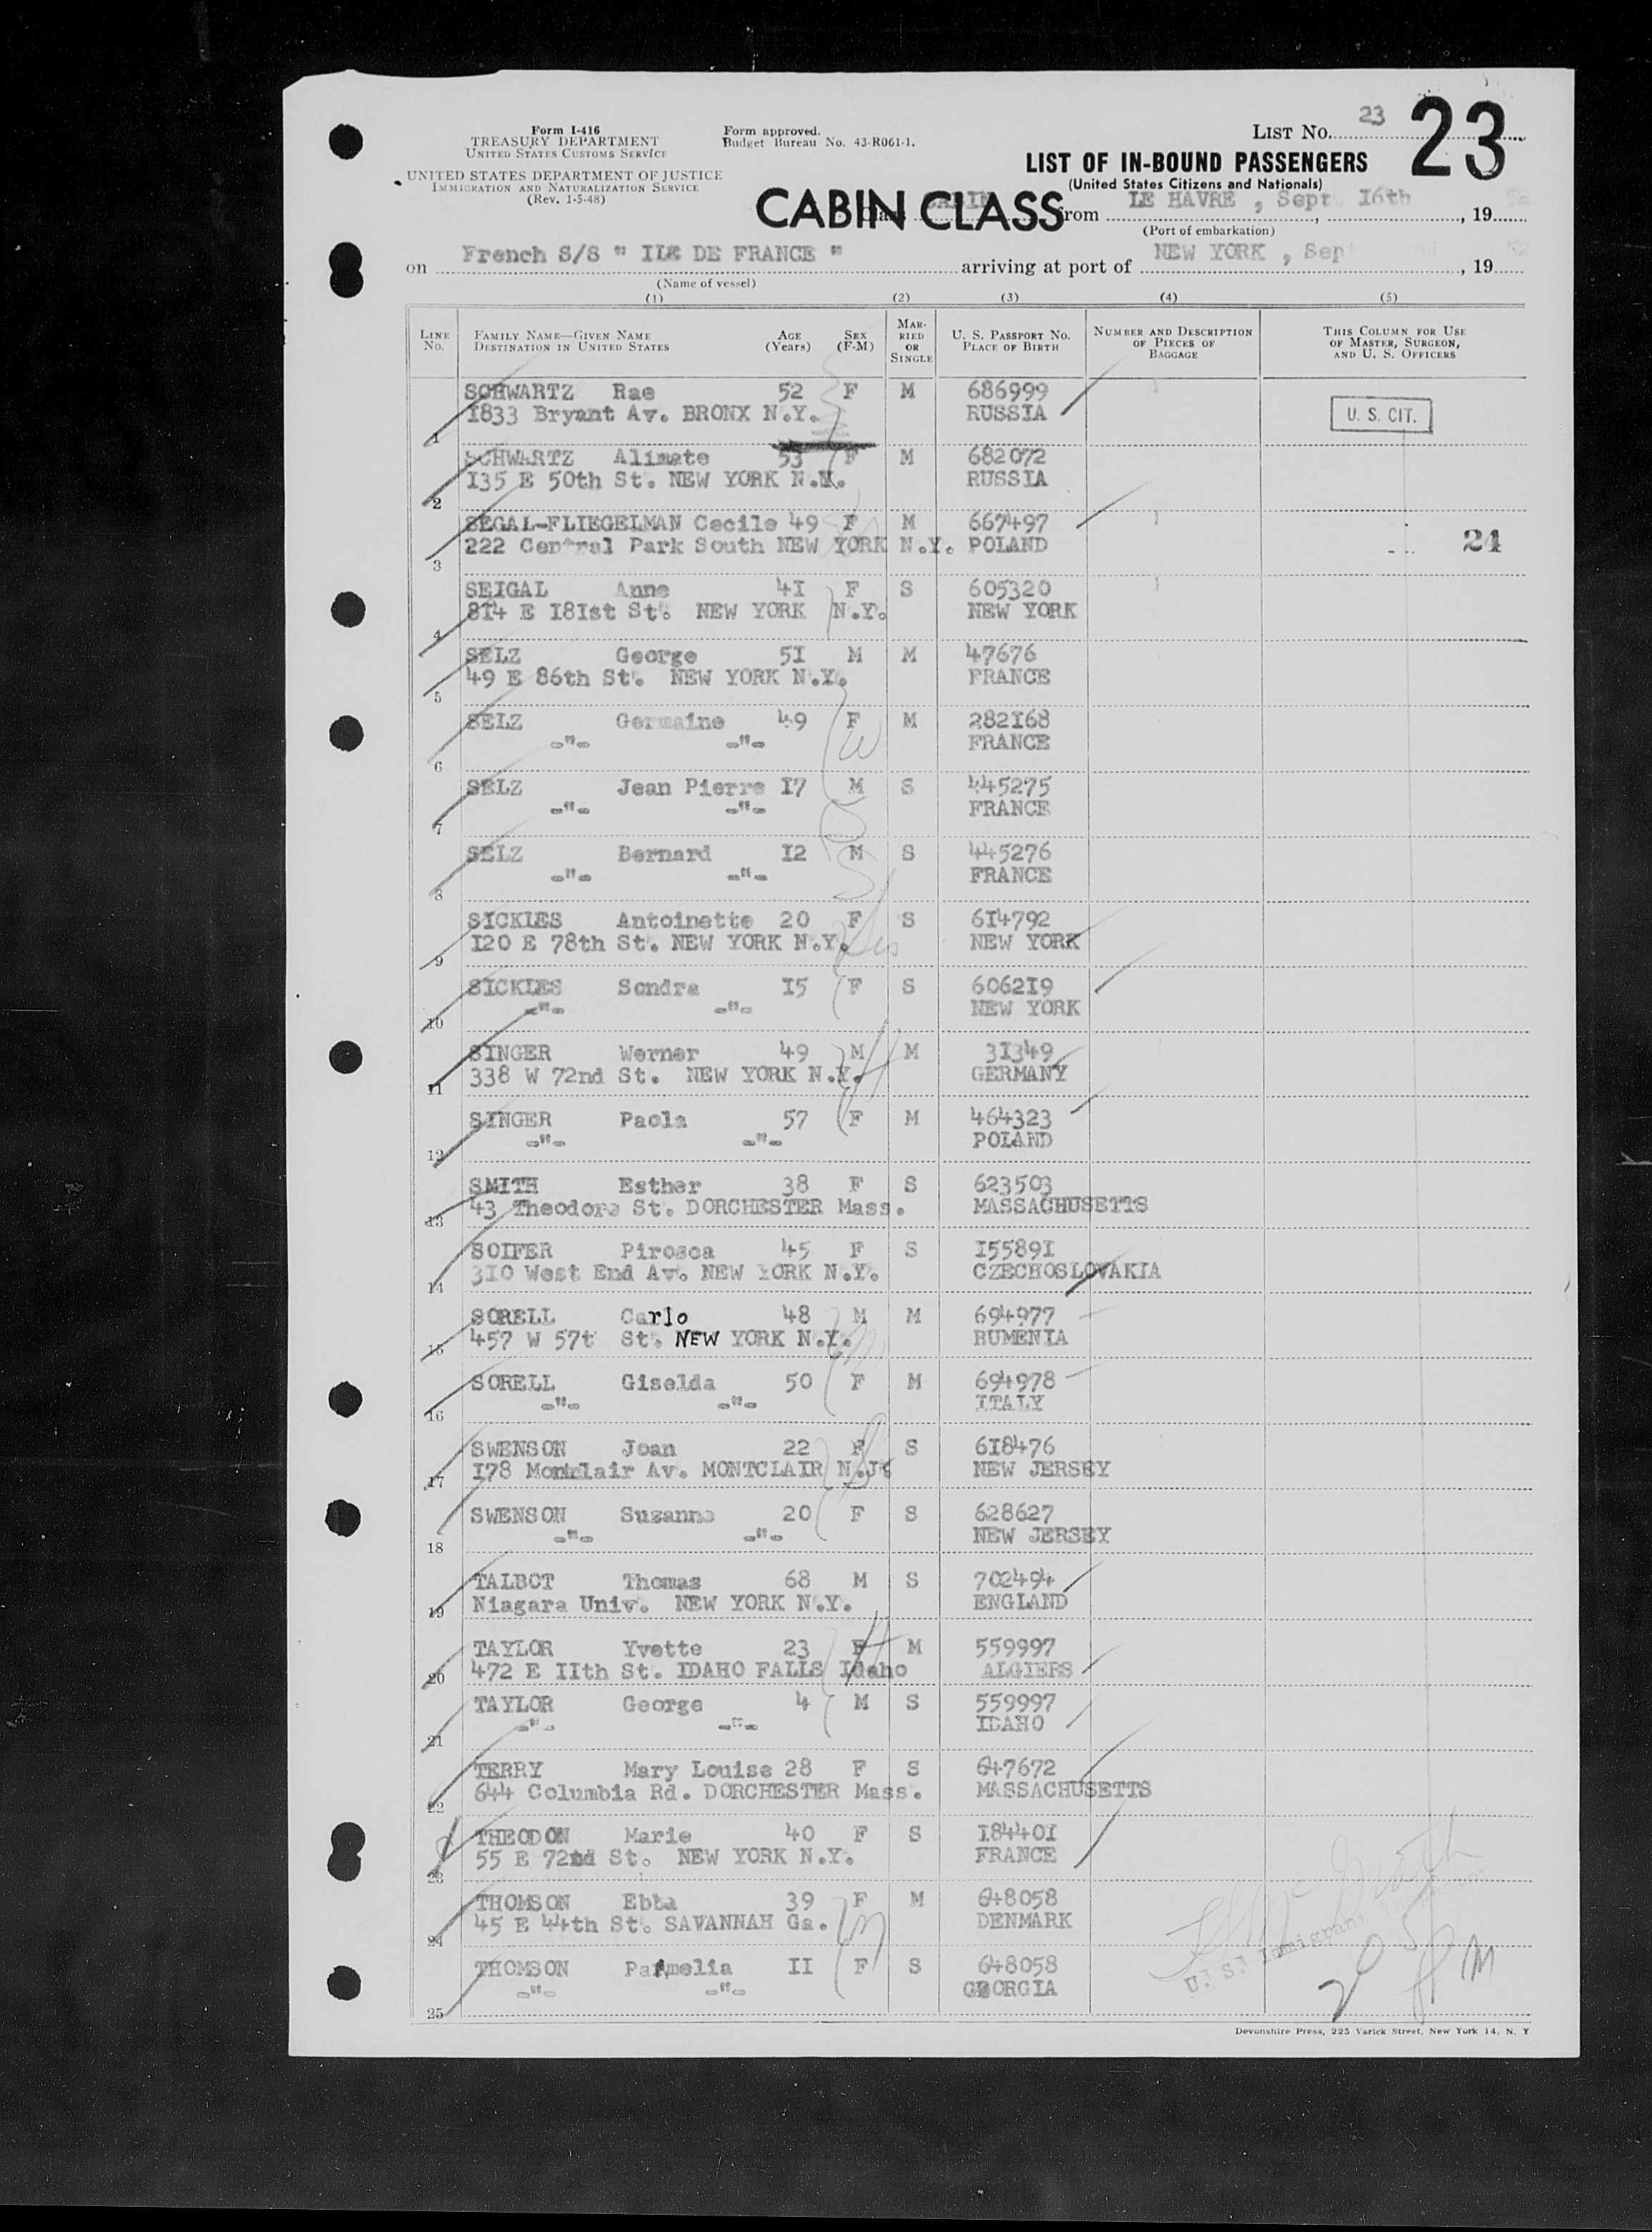 Form I-416
TREASURY DEPARTMENT
UNITED STATES CUSTOMS SERVICE
UNITED STATES DEPARTMENT OF JUSTICE
IMMIGRATION AND NATURALIZATION SERVICE
(Rev. 1-5-48)
Form approved.
Budget Bureau No. 43-R061-1.
LIST No. 23
23
LIST OF IN-BOUND PASSENGERS
(United States Citizens and Nationals)
CABIN CLASS from LE HAVRE , Sept 16th , 19 52
(Port of embarkation)
on French S/S " ILE DE FRANCE " arriving at port of NEW YORK , Sep , 19
(Name of vessel)
(1) (2) (3) (4) (5)
LINE No. FAMILY NAME—GIVEN NAME DESTINATION IN UNITED STATES AGE (Years) SEX (F-M) MARRIED OR SINGLE U. S. PASSPORT NO. PLACE OF BIRTH NUMBER AND DESCRIPTION OF PIECES OF BAGGAGE THIS COLUMN FOR USE OF MASTER, SURGEON, AND U. S. OFFICERS
SCHWARTZ Rae 52 F M 686999
1 1833 Bryant Av. BRONX N.Y. RUSSIA U. S. CIT.
SCHWARTZ Alimate 53 F M 682072
2 135 E 50th St. NEW YORK N.Y. RUSSIA
SEGAL-FLIEGELMAN Cecile 49 F M 667497
3 222 Central Park South NEW YORK N.Y. POLAND 24
SEIGAL Anne 41 F S 605320
4 814 E 181st St. NEW YORK N.Y. NEW YORK
SELZ George 51 M M 47676
5 49 E 86th St. NEW YORK N.Y. FRANCE
SELZ Germaine 49 F M 282168
6 -"- -"- FRANCE
SELZ Jean Pierre 17 M S 445275
7 -"- -"- FRANCE
SELZ Bernard 12 M S 445276
8 -"- -"- FRANCE
SICKLES Antoinette 20 F S 614792
9 120 E 78th St. NEW YORK N.Y. NEW YORK
SICKLES Sondra 15 F S 606219
10 -"- -"- NEW YORK
SINGER Werner 49 M M 31349
11 338 W 72nd St. NEW YORK N.Y. GERMANY
SINGER Paola 57 F M 464323
12 -"- -"- POLAND
SMITH Esther 38 F S 623503
13 43 Theodore St. DORCHESTER Mass. MASSACHUSETTS
SOIFER Pirosca 45 F S 155891
14 310 West End Av. NEW YORK N.Y. CZECHOSLOVAKIA
SORELL Carlo 48 M M 694977
15 457 W 57t St. NEW YORK N.Y. RUMENIA
SORELL Giselda 50 F M 694978
16 -"- -"- ITALY
SWENSON Joan 22 F S 618476
17 178 Montclair Av. MONTCLAIR N.J. NEW JERSEY
SWENSON Suzanne 20 F S 628627
18 -"- -"- NEW JERSEY
TALBOT Thomas 68 M S 702494
19 Niagara Univ. NEW YORK N.Y. ENGLAND
TAYLOR Yvette 23 F M 559997
20 472 E 11th St. IDAHO FALLS Idaho ALGIERS
TAYLOR George 4 M S 559997
21 -"- -"- IDAHO
TERRY Mary Louise 28 F S 647672
22 644 Columbia Rd. DORCHESTER Mass. MASSACHUSETTS
THEODON Marie 40 F S 184401
23 55 E 72nd St. NEW YORK N.Y. FRANCE
THOMSON Ebba 39 F M 648058
24 45 E 44th St. SAVANNAH Ga. DENMARK
THOMSON Pamelia 11 F S 648058
25 -"- -"- GEORGIA
U. S. Immigrant
Devonshire Press, 225 Varick Street, New York 14, N. Y